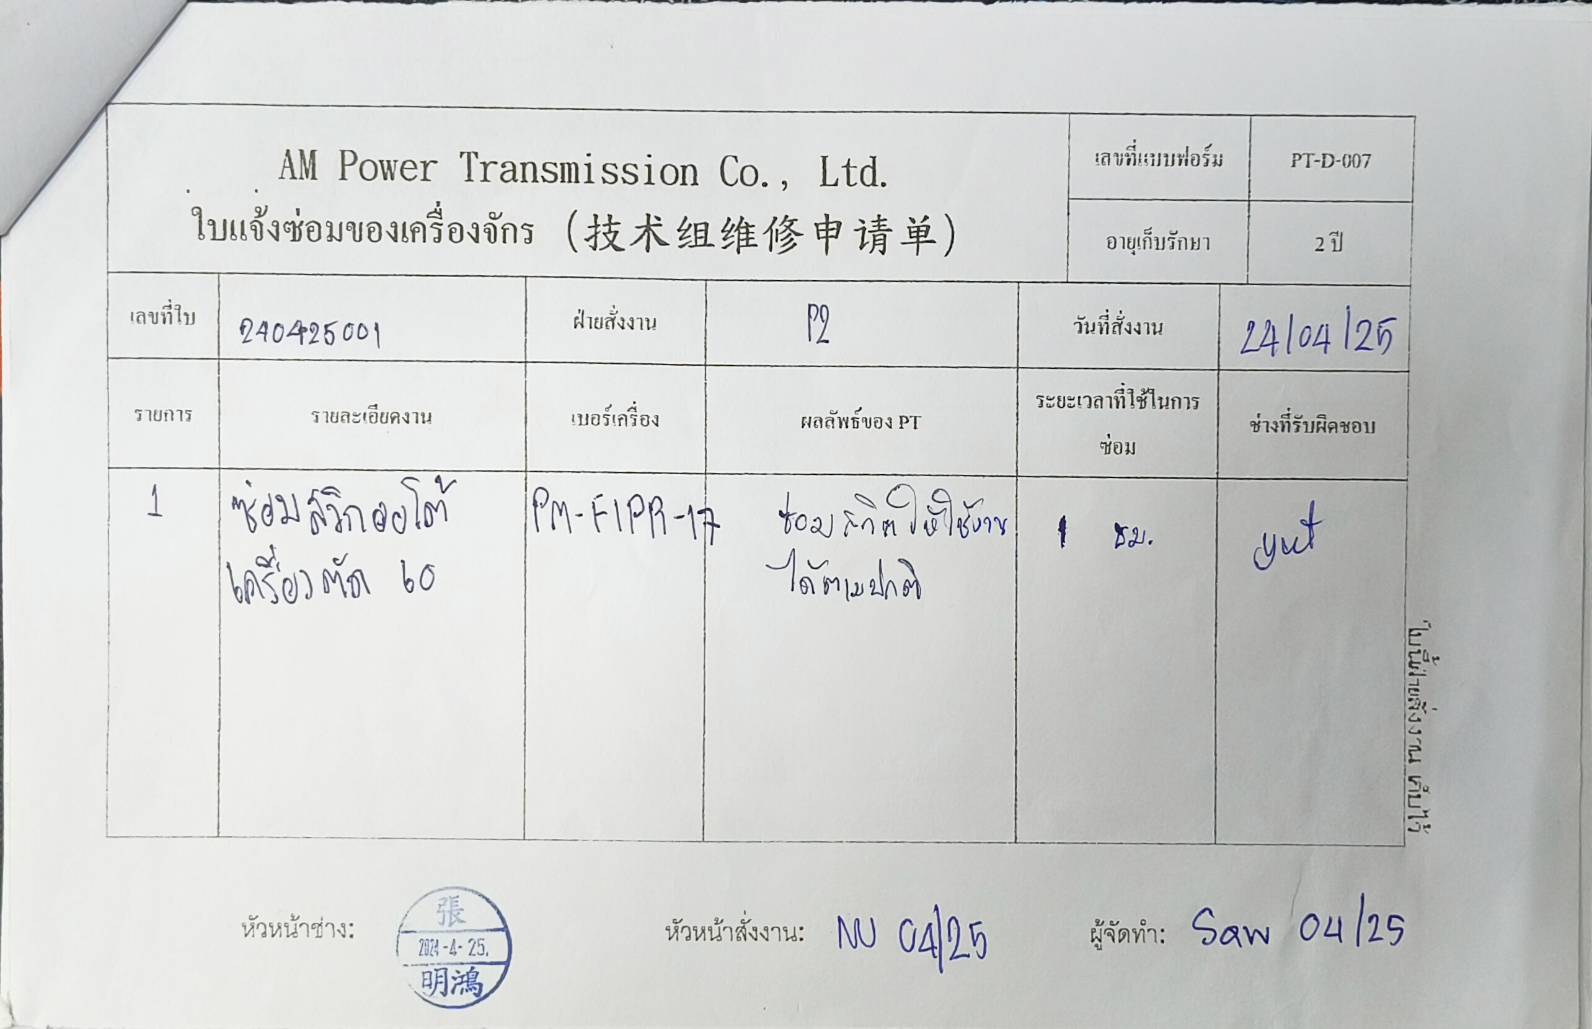 AM Power Transmission Co., Ltd.
ใบแจ้งซ่อมของเครื่องจักร (技术组维修申请单)
เลขที่แบบฟอร์ม PT-D-007
อายุเก็บรักษา 2 ปี
เลขที่ใบ 240425001 ฝ่ายสั่งงาน P2 วันที่สั่งงาน 24/04/25
รายการ รายละเอียดงาน เบอร์เครื่อง ผลลัพธ์ของ PT ระยะเวลาที่ใช้ในการซ่อม ช่างที่รับผิดชอบ
1 ซ่อมสวิกออโต้ PM-F1PR-17 ซ่อม ให้ใช้งาน 1 ชม. yut
เครื่องตัด 60 ได้ตามปกติ
ใบนี้ฝ่ายสั่งงาน เก็บไว้
หัวหน้าช่าง: 張 2024-4-25. 明鴻 หัวหน้าสั่งงาน: NU 04/25 ผู้จัดทำ: Saw 04/25